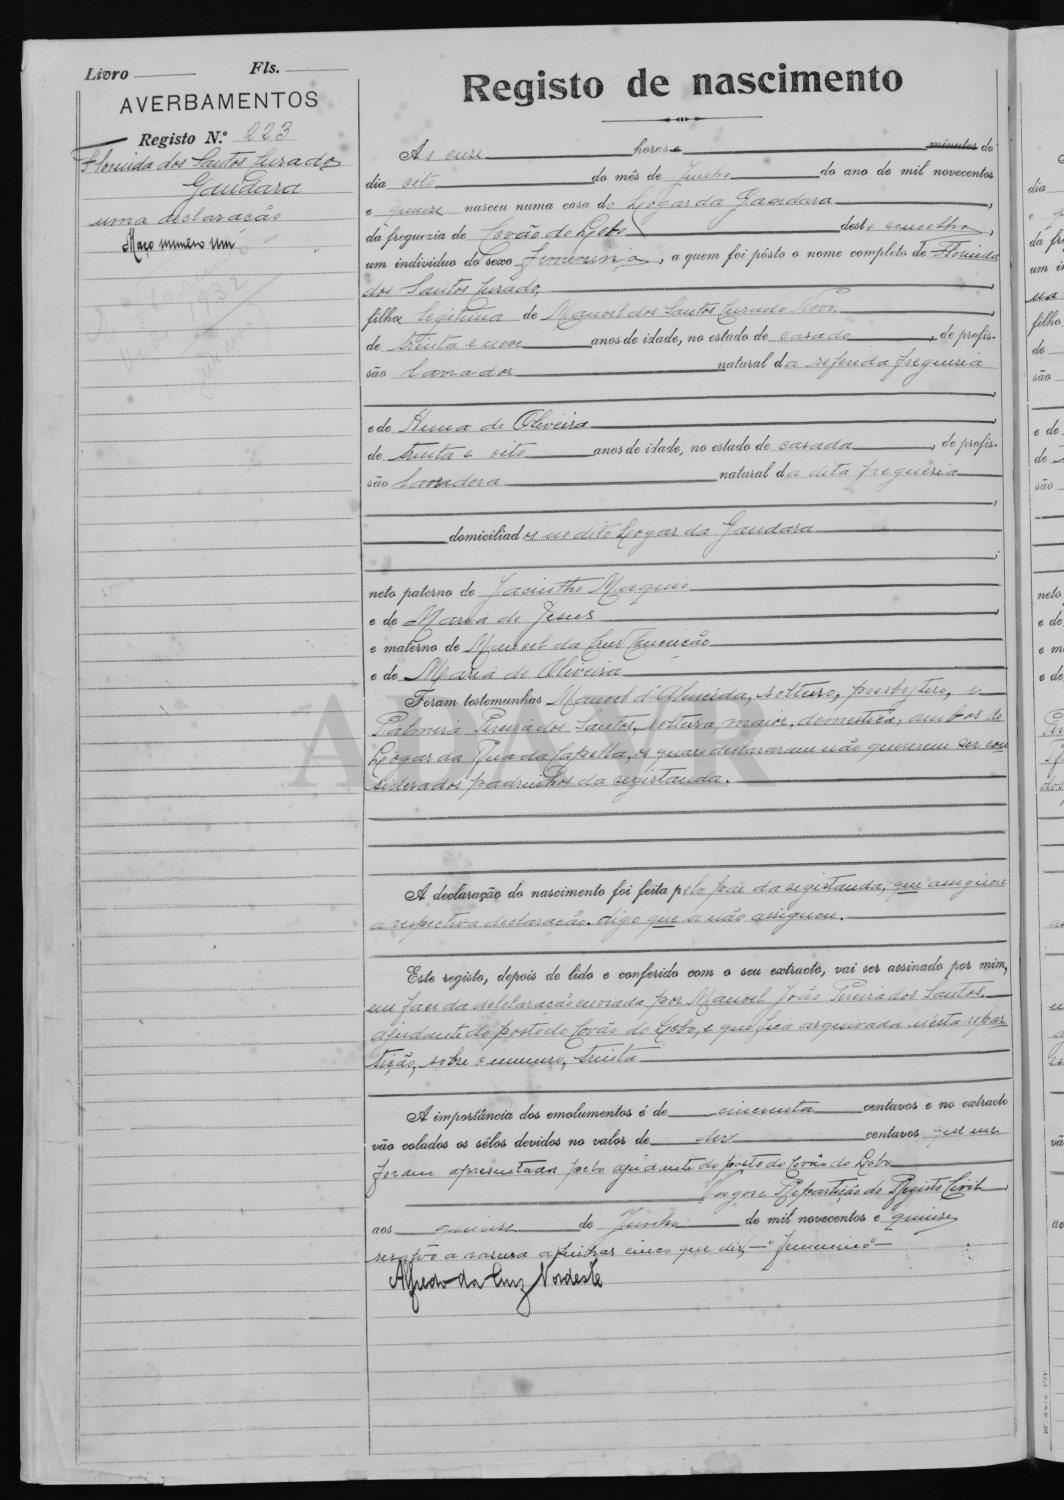 Livro Fls.
AVERBAMENTOS
Registo N.º 223
Florinda dos Santos Jurado
Gandara
uma declaração
Maço numero um
1932
Registo de nascimento
As onze horas e minutos do
dia oito do mês de Junho do ano de mil novecentos
e quinze nasceu numa casa do Logar da Gandara,
da freguezia de Covão do Lobo deste concelho,
um individuo do sexo femenino, a quem foi pôsto o nome completo de Florinda
dos Santos Jurado,
filha legitima de Manoel dos Santos Jurado Novo,
de trinta e nove anos de idade, no estado de casado, de profis-
são lavrador natural da referida freguesia
,
e de Anna de Oliveira,
de trinta e oito anos de idade, no estado de casada, de profis-
são lavradora natural da dita freguesia
,
domiciliados no dito Logar da Gandara
;
neto paterno de Jacintho
e de Maria de Jesus,
e materno de Manoel da Cruz Conceição
e de Maria de Oliveira
Foram testemunhas Manoel d'Almeida, solteiro, presbytero, e
Palmira Pereira dos Santos, solteira, maior, domestica, ambos do
Logar da Rua da Capella, os quaes declararam não quererem ser con
siderados padrinhos da registanda.
A declaração do nascimento foi feita pelo pae da registanda, que assignou
a respectiva declaração, digo que a não assignou.
Este registo, depois de lido e conferido com o seu extracto, vai ser assinado por mim,
em face da declaração enviada por Manoel João Pereira dos Santos,
ajudante do posto do Covão do Lobo, e que fica arquivada nesta repar
tição, sobre o numero, trinta
A importância dos emolumentos é de cincoenta centavos e no extracto
vão colados os sêlos devidos no valor de dez centavos que me
foram apresentados pelo ajudante do posto do Covão do Lobo
Vagos Repartição do Registo Civil,
aos quinze de Junho de mil novecentos e quinze
resalvo a rasura a linhas cinco que diz — "femenino" —
Alfredo da Cruz Nordeste